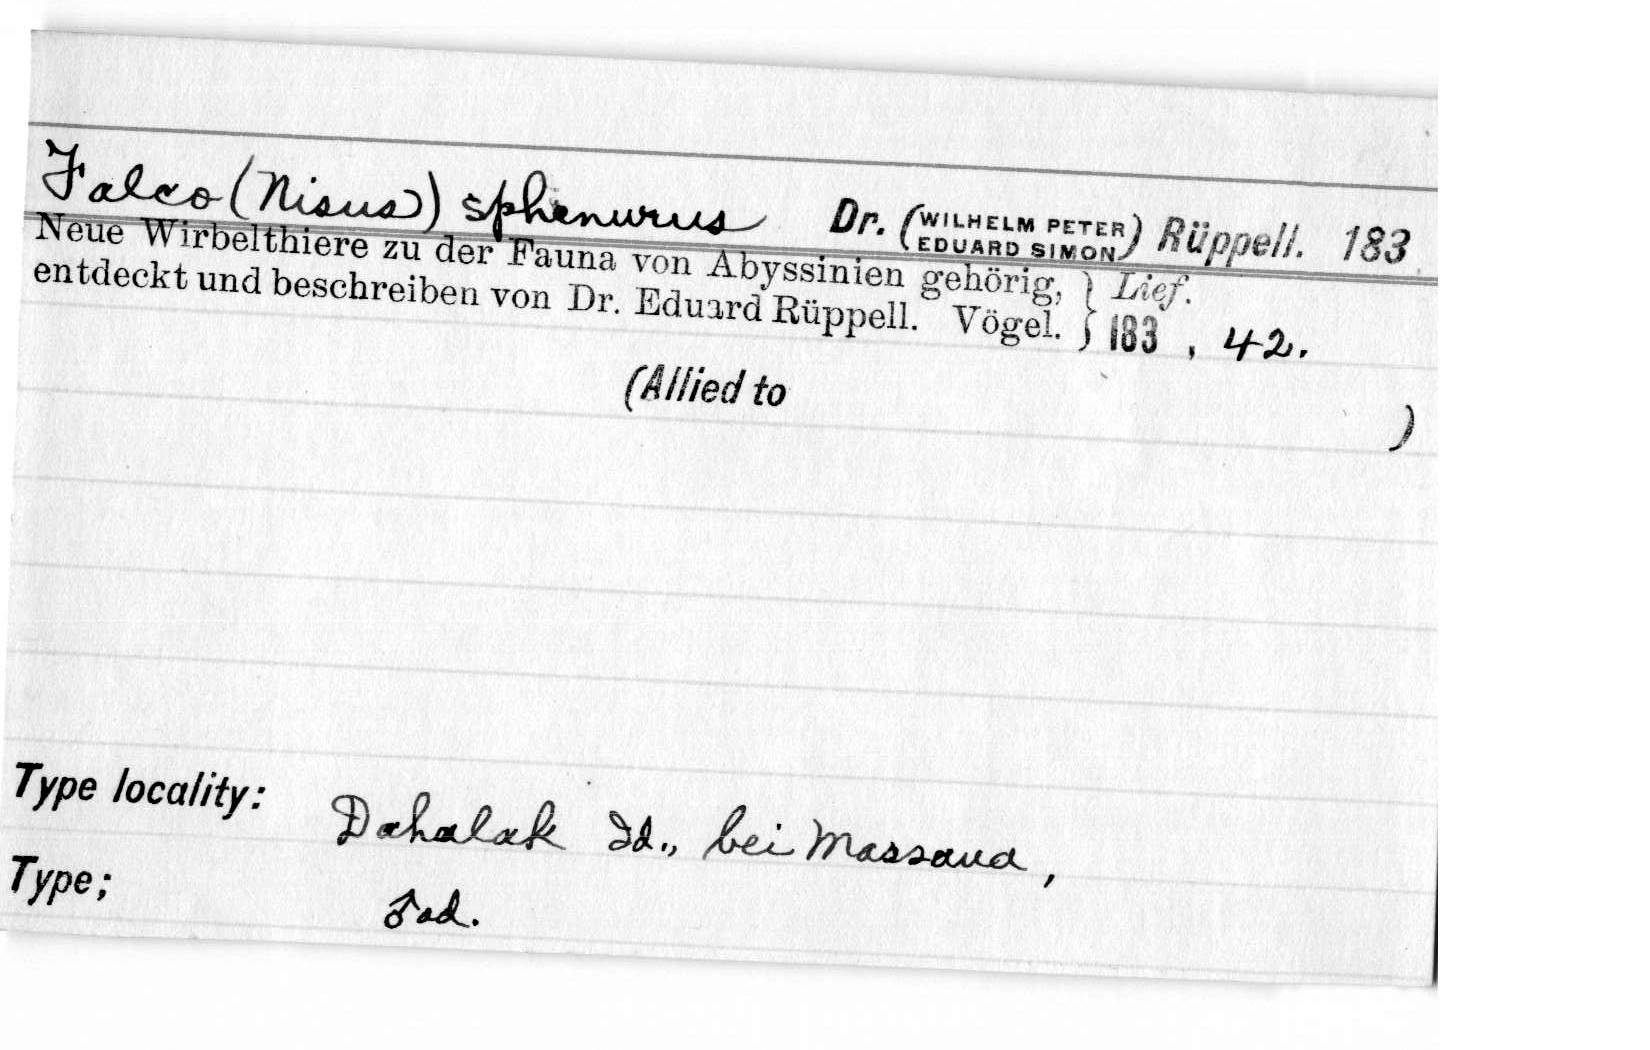 Falco (Nisus) sphenurus Dr. (WILHELM PETER EDUARD SIMON) Rüppell. 183
Neue Wirbelthiere zu der Fauna von Abyssinien gehörig, } Lief.
entdeckt und beschreiben von Dr. Eduard Rüppell. Vögel. } 183 , 42.
(Allied to )
Type locality: Dahalak Id., bei Massaua,
Type; ♂ ad.